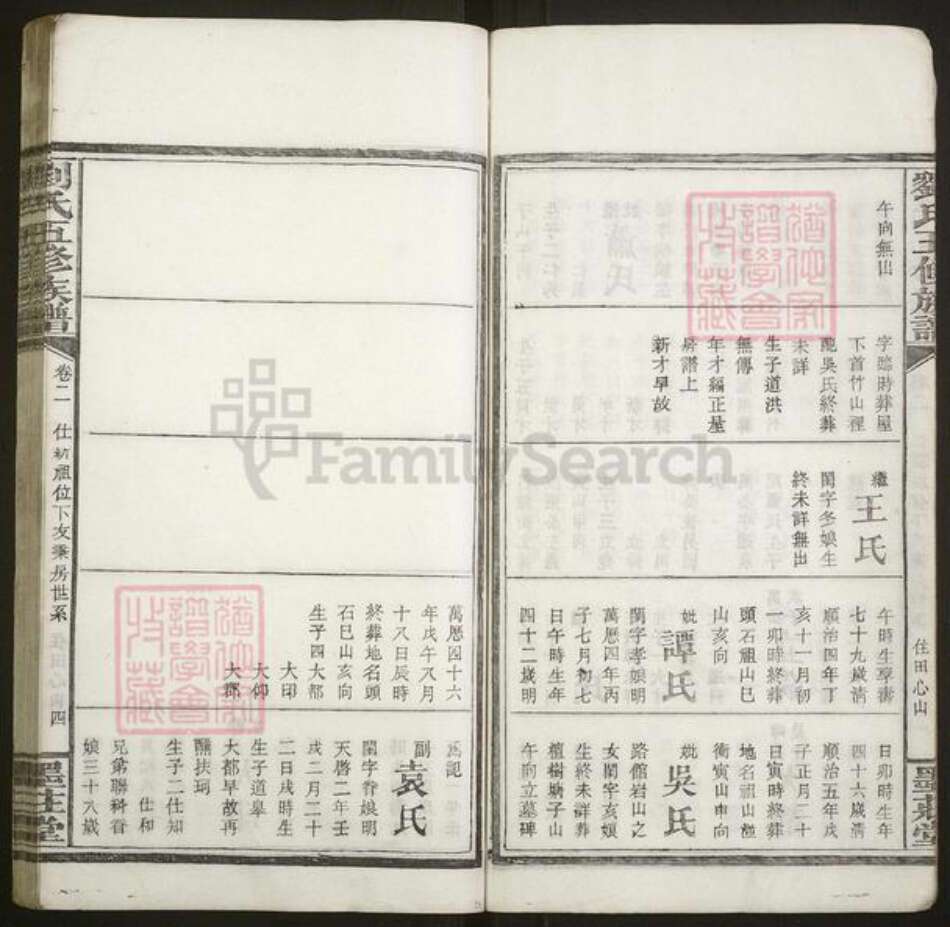 劉氏五修族譜
午向無出
字臨時葬屋
下首竹山裡
配吳氏終葬
未詳
生子道洪
無傳
年才編正屋
房譜上
新才早故
繼
王氏
閨字冬娘生
終未詳無出
午時生享壽
七十九歲清
順治四年丁
亥十一月初
一卯時終葬
頭石祖山巳
山亥向
妣
譚氏
閨字孝娘明
萬歷四年丙
子七月初七
日午時生年
四十二歲明
日卯時生年
四十六歲清
順治五年戌
子正月二十
日寅時終葬
地名祖山
衝寅山申向
妣
吳氏
路館岩山之
女閨字亥娘
生終未詳葬
植樹塘子山
午向立墓碑
住田心山
墨莊堂
萬歷四十六
年戊午八月
十八日辰時
終葬地名頭
石巳山亥向
生子四大都
大印
大仰
大鄉
為記
副
袁氏
閨字眷娘明
天啓二年壬
戌二月二十
二日戌時生
生子道皋
大都早故再
醮扶珂
生子二仕知
仕和
兄弟聯科眷
娘三十八歲
劉氏五修族譜
卷二
仕新祖位下友秉房世系
四
墨莊堂
猶他家
譜學會
收藏
猶他家
譜學會
收藏
FamilySearch